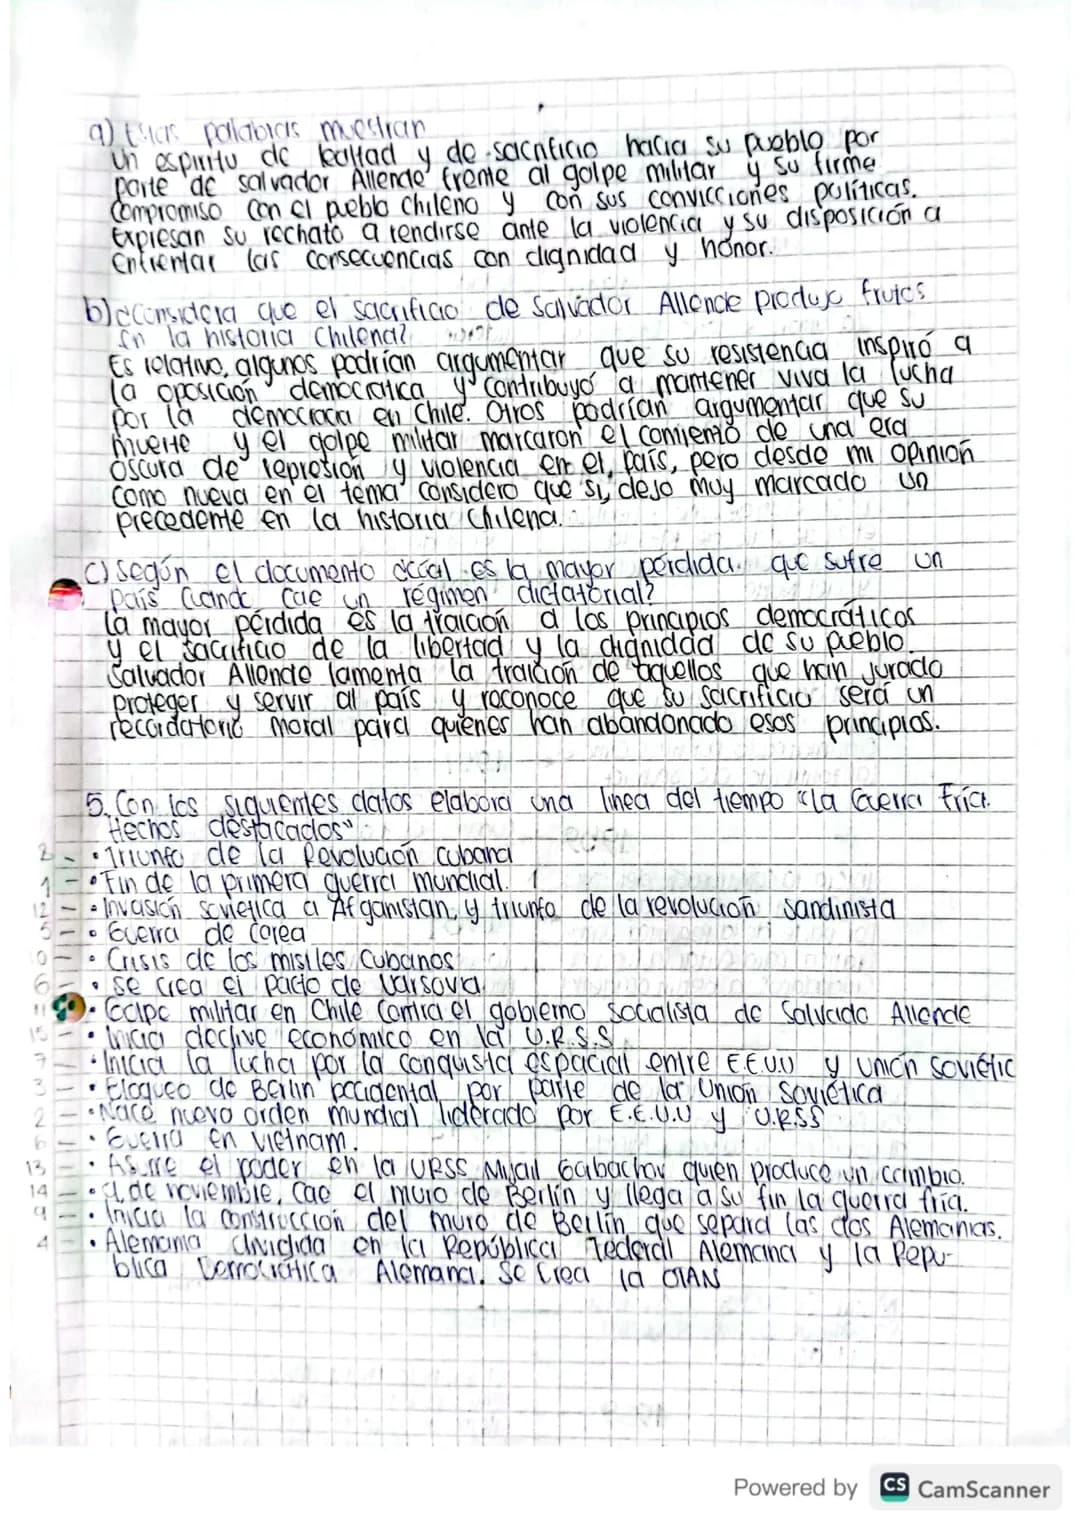 a) Estas palabras muestran
un espiritu de lealtad y de sacrificio hacia su pueblo por
parte de salvador Allende frente al golpe militar y su firme
compromiso con el pueblo chileno y con sus convicciones políticas.
Expresan su rechazo a rendirse ante la violencia y su disposición a
enfrentar las consecuencias con dignidad y honor.
b) ¿Considera que el sacrificio de Salvador Allende produjo frutos
en la historia Chilena?
Es relativo, algunos podrían argumentar que su resistencia inspiró a
la oposición democratica y contribuyó a mantener viva la lucha
por la democracia en Chile. Otros podrían argumentar que su
muerte y el golpe militar marcaron el comienzo de una era
oscura de represion y violencia en el país, pero desde mi opinión
como nueva en el tema considero que si, dejo muy marcado un
precedente en la historia Chilena.
c) Según el documento ¿cúal es la mayor pérdida que sufre un
país cuando cae un régimen dictatorial?
La mayor pérdida es la traición a los principios democráticos
y el sacrificio de la libertad y la dignidad de su pueblo.
Salvador Allende lamenta la traición de aquellos que han jurado
proteger y servir al país y reconoce que su sacrificio será un
recordatorio moral para quienes han abandonado esos principios.
5. Con los siguientes datos elabora una linea del tiempo "La Guerra Fría.
Hechos destacados"
2 - • Triunfo de la Revolución cubana
1 - • Fin de la primera guerra mundial.
12 - • Invasión soviética a Afganistan y triunfo de la revolución sandinista
5 - • Guerra de Corea
10 - • Crisis de los misiles Cubanos
6 - • Se crea el pacto de Varsovia.
11 • Golpe militar en Chile contra el gobierno socialista de Salvado Allende
15 - • Inicia declive económico en la U.R.S.S
7 - • Inicia la lucha por la conquista espacial entre EE.UU y unión soviétic
3 - • Bloqueo de Berlin occidental por parte de la Unión Soviética
2 - • Nace nuevo orden mundial liderado por E.E.U.U y U.R.SS
6 - • Guerra en Vietnam.
13 - • Asume el poder en la URSS Mijail Gorbachov quien produce un cambio.
14 - • 9 de noviembre, Cae el muro de Berlin y llega a su fin La guerra fría.
9 - • Inicia la construccion del muro de Berlin que separa las dos Alemanias.
4 - • Alemania dividida en la República Federal Alemana y la Repu-
blica Democratica Alemana. Se crea la OTAN
Powered by CS CamScanner